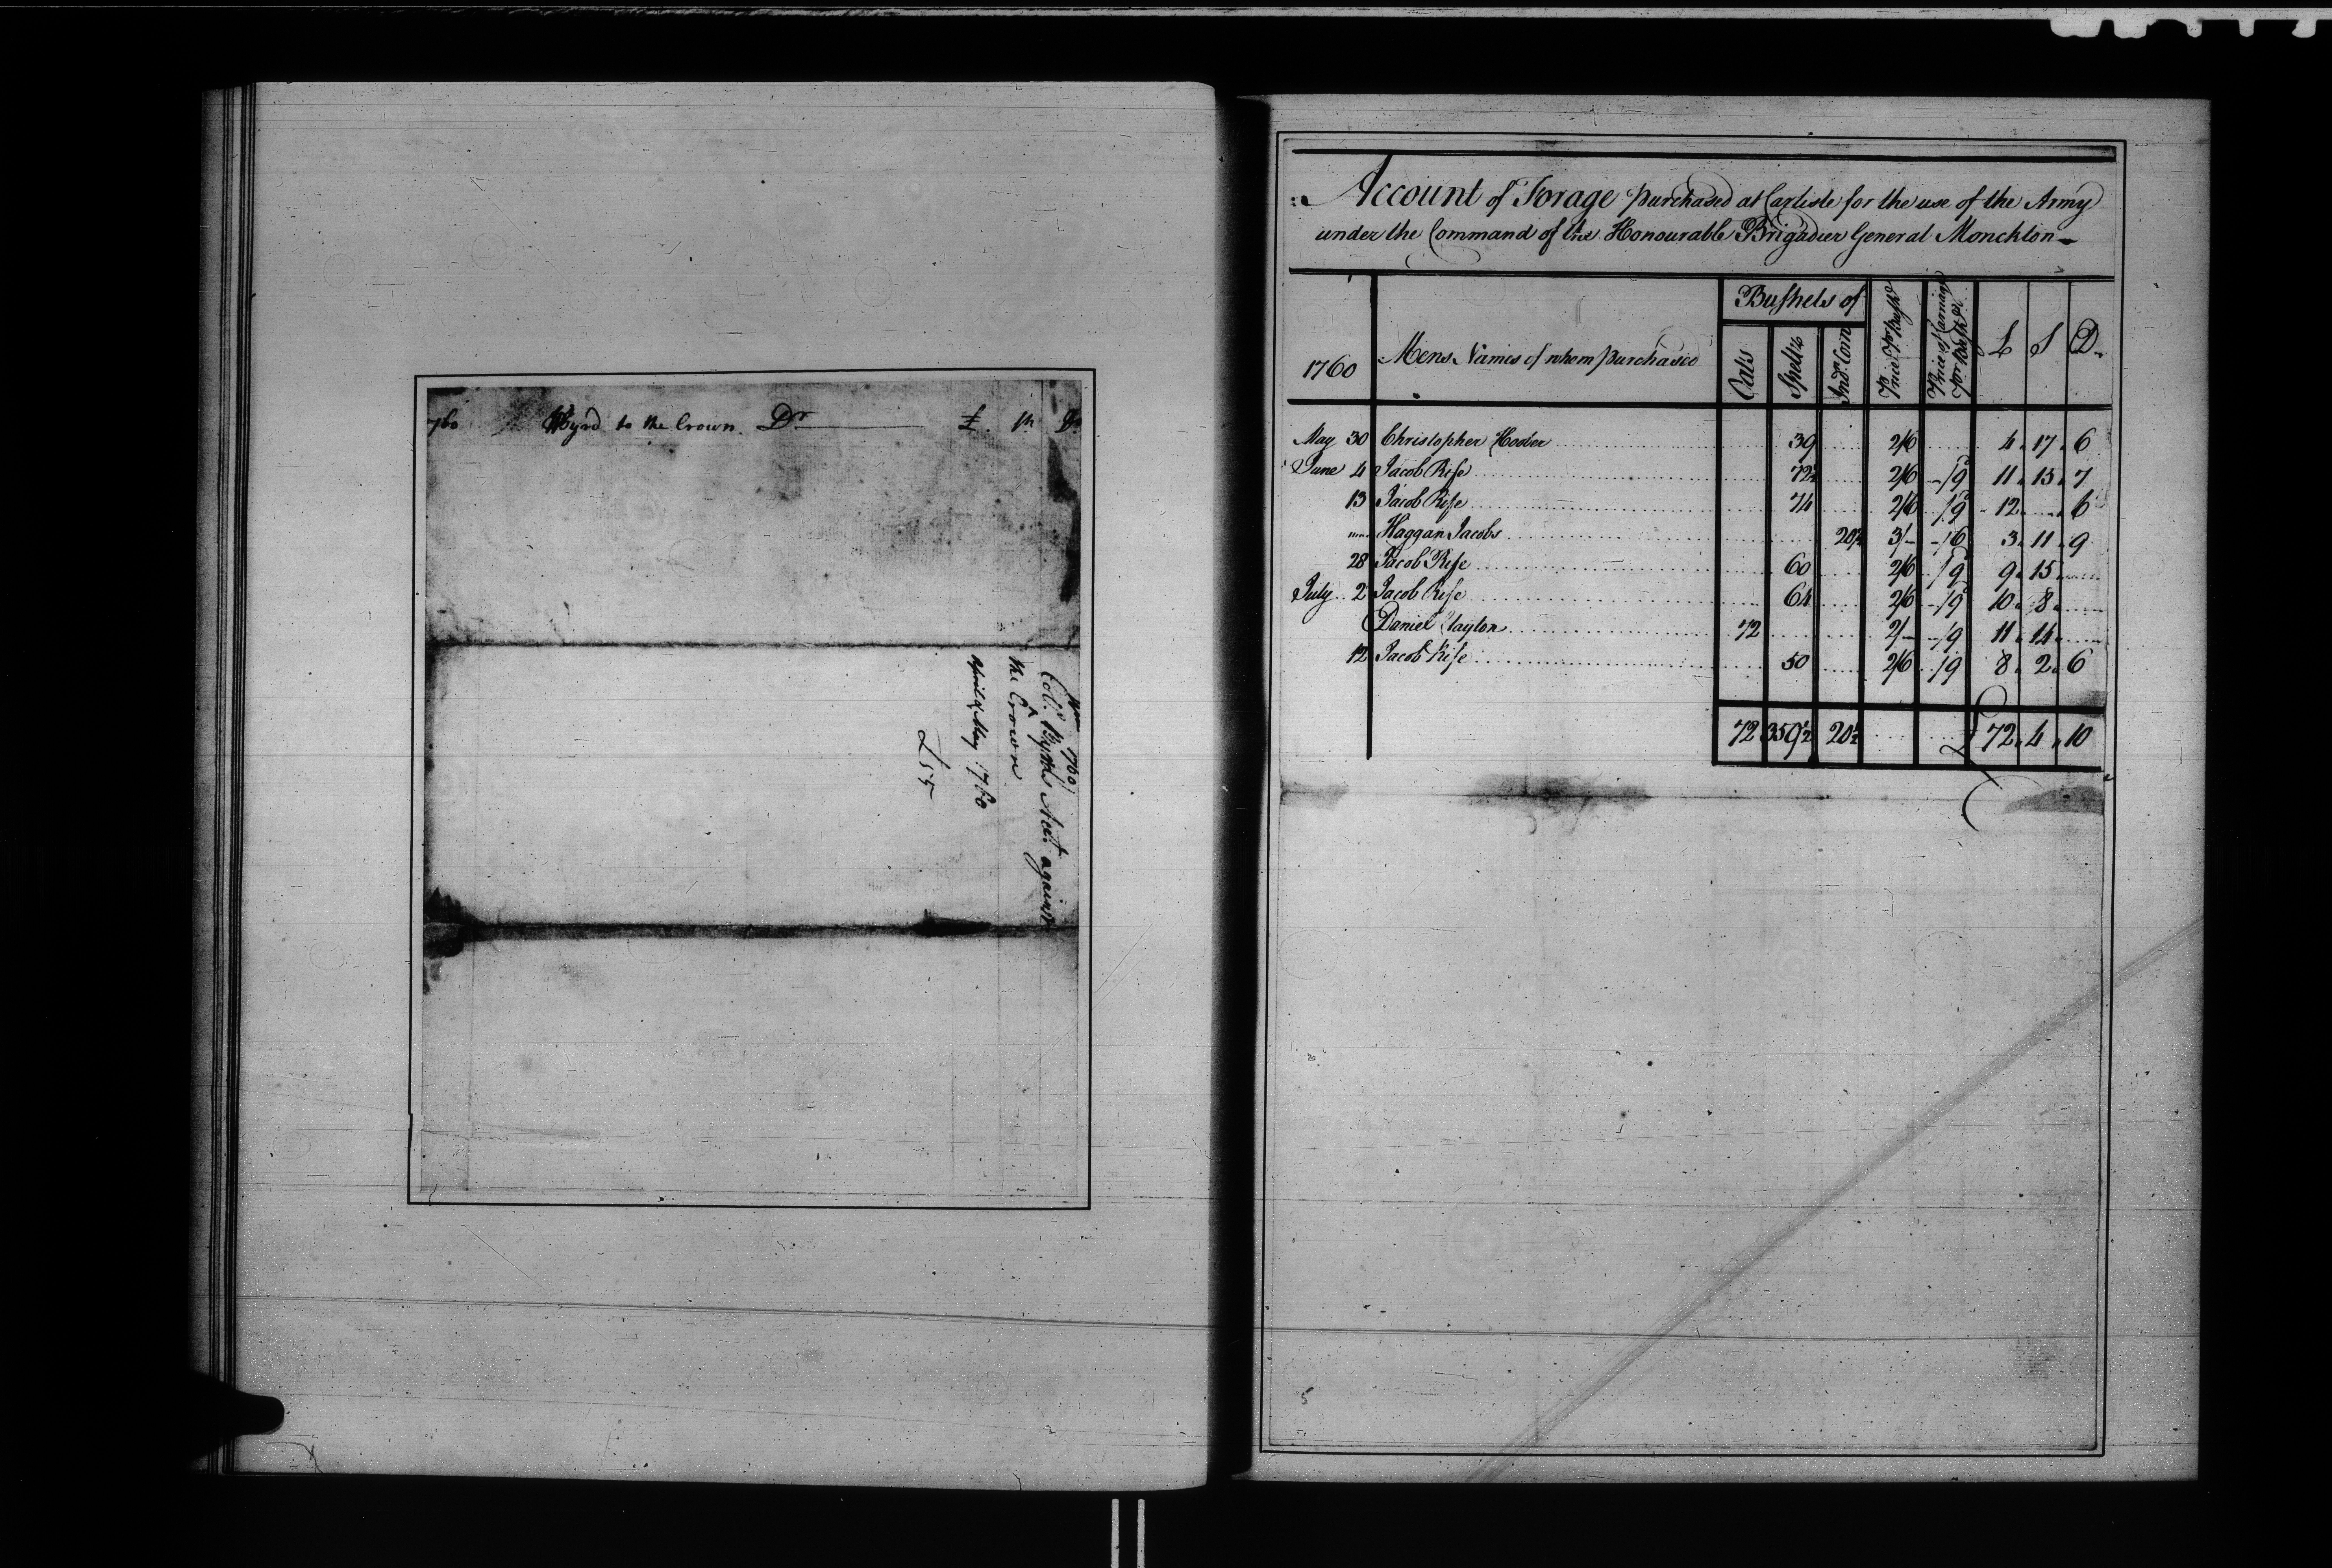 760 Byrd to the Crown. Dr £. Sh D
1760
Coll. Byrds Acct. against
the Crown
April & May 1760
£ 55
Account of Forage purchased at Carlisle for the use of the Army
under the Command of the Honourable Brigadier General Monckton
1760 Mens Names of whom purchased Bushels of Oats Speltz Ind. Corn Price Pr. Bushl. Price of Carriage Pr. Bushl. £ S D.
May 30 Christopher 39 2/6 4 . 17 . 6
June 4 Jacob Rise 72½ 2/6 -/9 11 . 15 . 7
13 Jacob Rise 74 2/6 -/9 12 . - . 6
Haggan Jacobs 20½ 3/- -/6 3 . 11 . 9
28 Jacob Rise 60 2/6 -/9 9 . 15
July 2 Jacob Rise 64 2/6 -/9 10 . 8 .
Daniel 72 2/- -/9 11 . 14 .
12 Jacob Rise 50 2/6 -/9 8 . 2 . 6
72 359½ 20½ £ 72 . 4 . 10